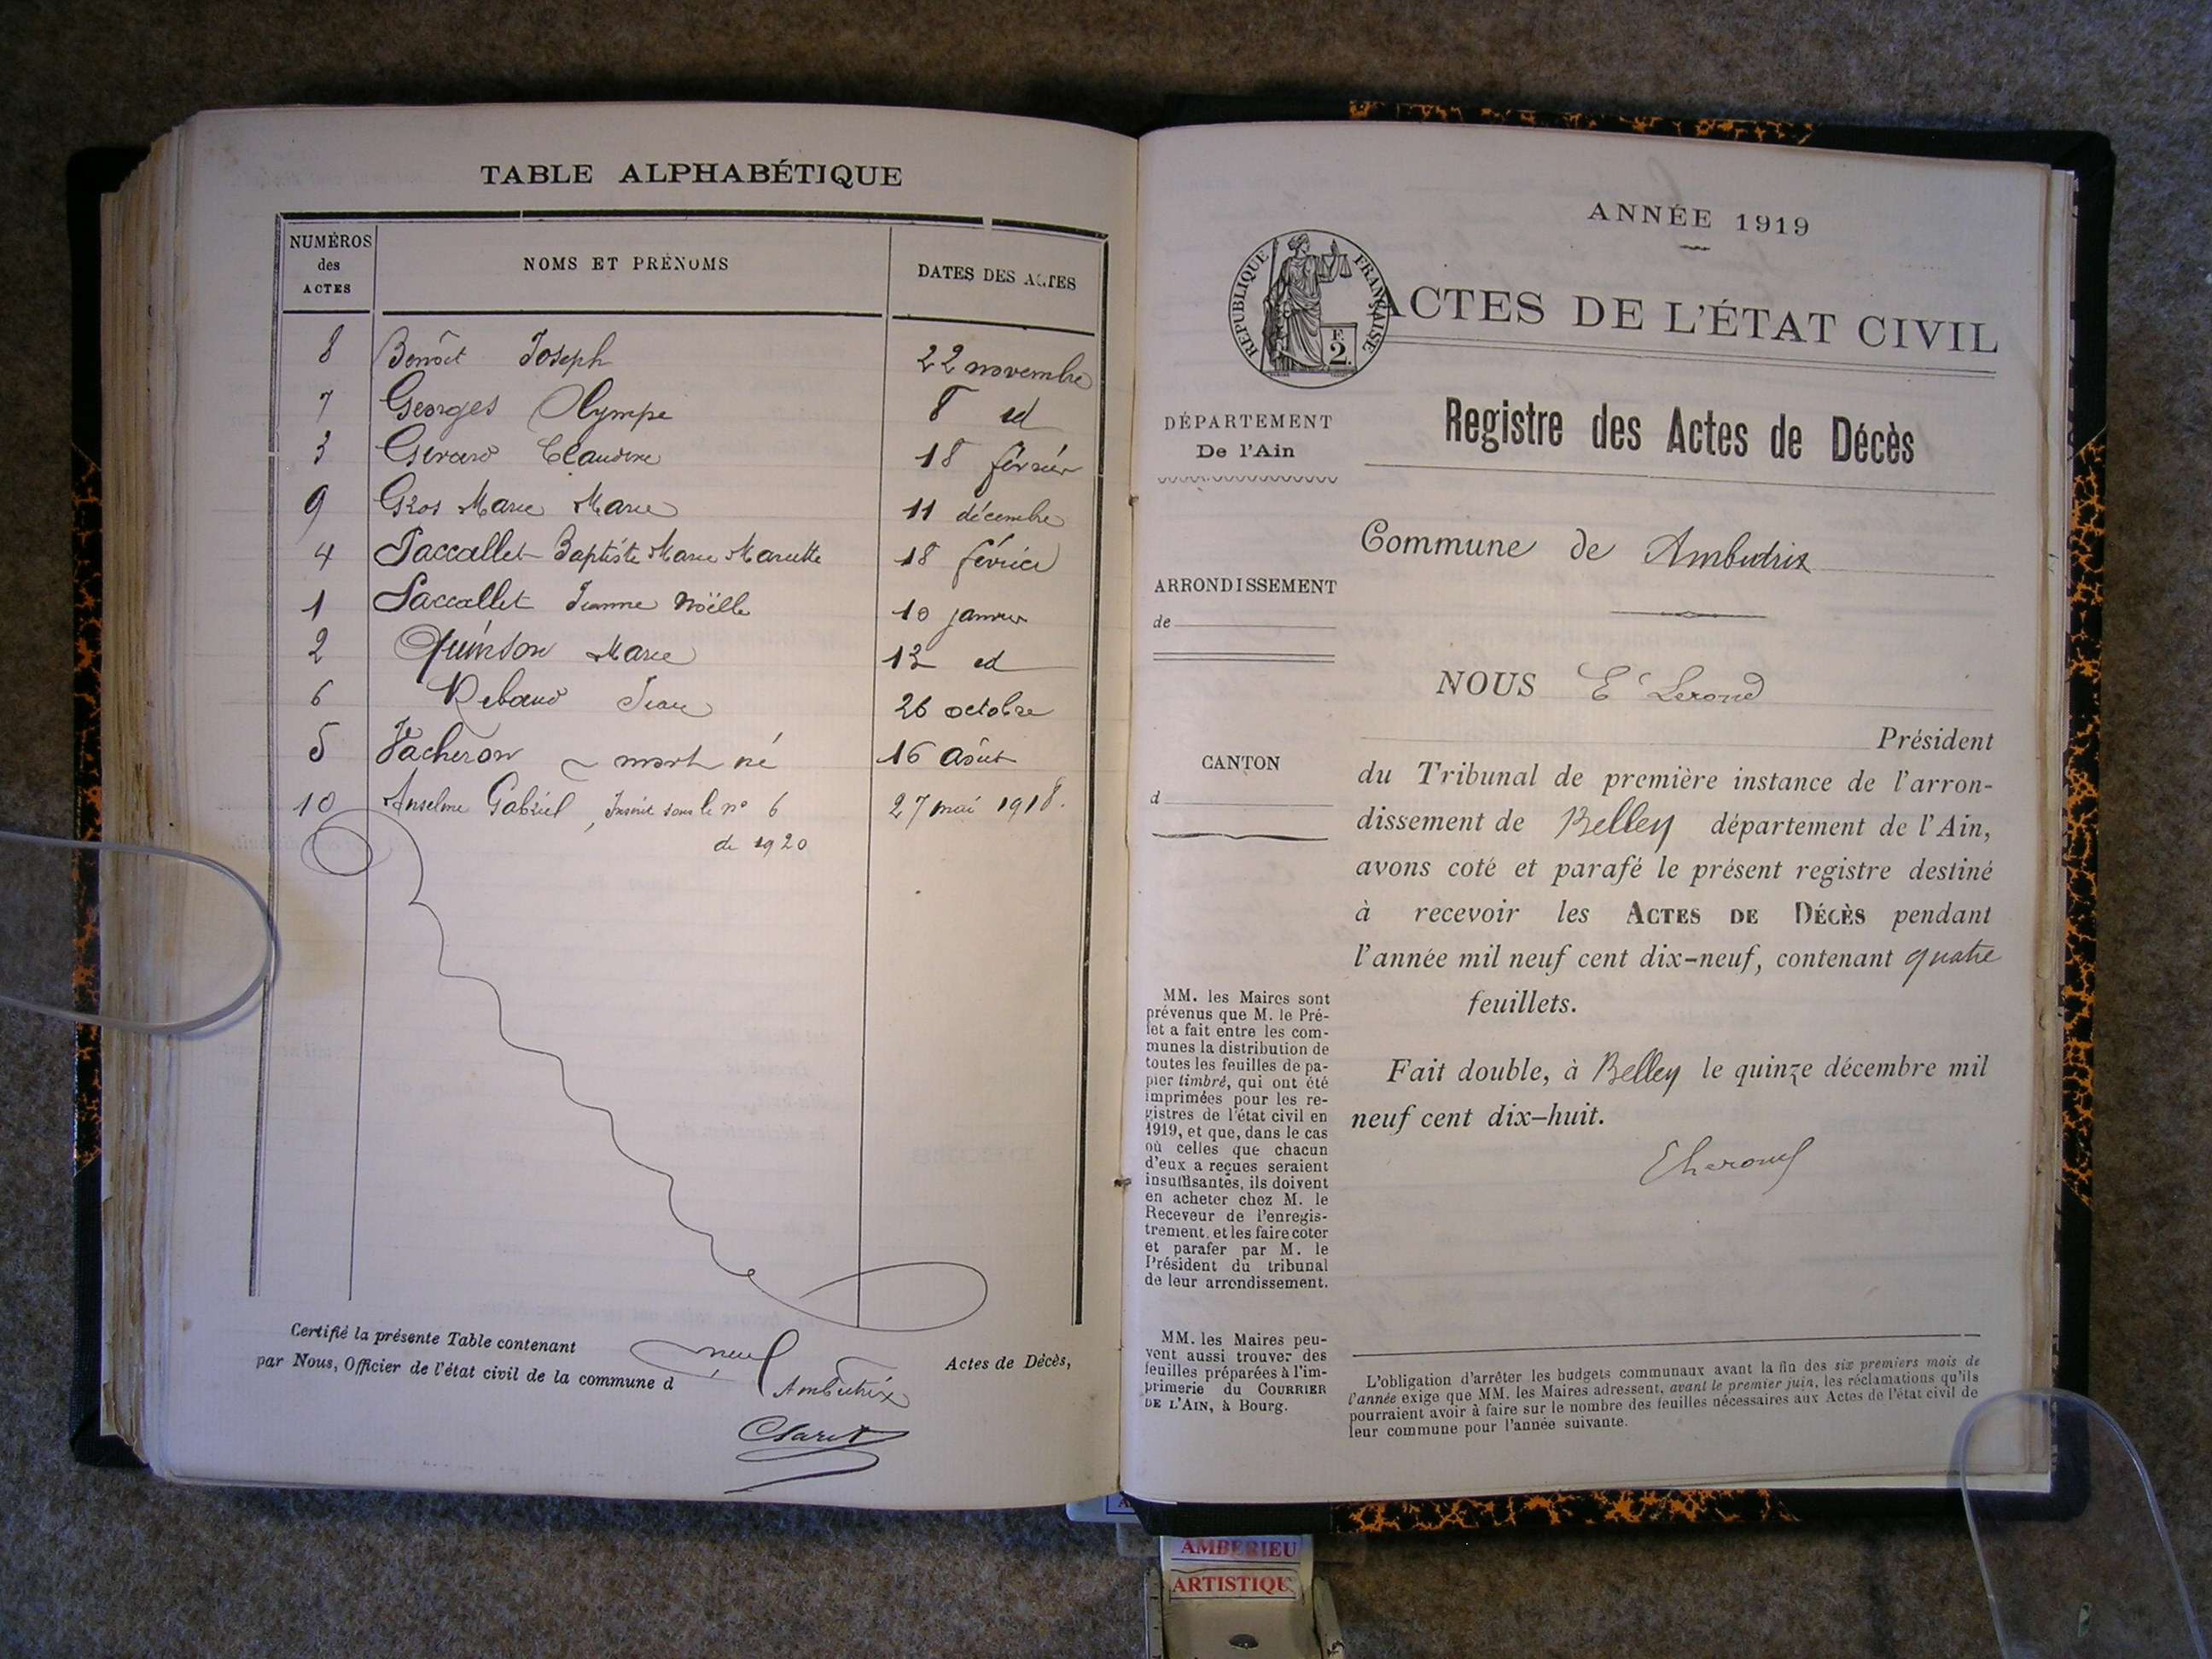 TABLE ALPHABÉTIQUE
NUMÉROS des ACTES
NOMS ET PRÉNOMS
DATES DES ACTES
8 Benoît Joseph 22 novembre
7 Georges Olympe 8 id
3 Girard Claudine 18 février
9 Gros Marie Marie 11 décembre
4 Paccallet Baptiste Marie Mariette 18 février
1 Paccallet Jeanne Noëlle 10 janvier
2 Quinson Marie 12 id
6 Rebaud Jean 26 octobre
5 Vacheron mort né 16 Août
10 Anselme Gabriel, Inscrit sous le n° 6 27 mai 1918.
de 1920
Certifié la présente Table contenant neuf Actes de Décès,
par Nous, Officier de l'état civil de la commune d Ambutrix
Claret
ANNÉE 1919
RÉPUBLIQUE FRANÇAISE
F.
2.
ACTES DE L'ÉTAT CIVIL
DÉPARTEMENT
De l'Ain
Registre des Actes de Décès
Commune de Ambutrix
ARRONDISSEMENT
de
CANTON
d
NOUS
Président
du Tribunal de première instance de l'arron-
dissement de Belley département de l'Ain,
avons coté et parafé le présent registre destiné
à recevoir les ACTES DE DÉCÈS pendant
l'année mil neuf cent dix-neuf, contenant quatre
feuillets.
Fait double, à Belley le quinze décembre mil
neuf cent dix-huit.
MM. les Maires sont
prévenus que M. le Pré-
fet a fait entre les com-
munes la distribution de
toutes les feuilles de pa-
pier timbré, qui ont été
imprimées pour les re-
gistres de l'état civil en
1919, et que, dans le cas
où celles que chacun
d'eux a reçues seraient
insuffisantes, ils doivent
en acheter chez M. le
Receveur de l'enregis-
trement, et les faire coter
et parafer par M. le
Président du tribunal
de leur arrondissement.
MM. les Maires peu-
vent aussi trouver des
feuilles préparées à l'im-
primerie du COURRIER
DE L'AIN, à Bourg.
L'obligation d'arrêter les budgets communaux avant la fin des six premiers mois de
l'année exige que MM. les Maires adressent, avant le premier juin, les réclamations qu'ils
pourraient avoir à faire sur le nombre des feuilles nécessaires aux Actes de l'état civil de
leur commune pour l'année suivante.
AMBERIEU
ARTISTIQU